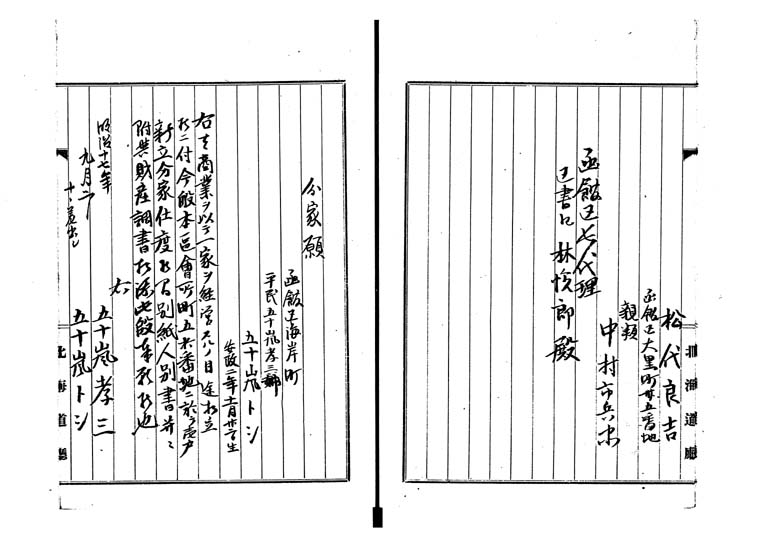 松代良吉
函館区大黒町廿五番地
親類
中村市兵衛
函館区長代理
区書記 林悦郎殿
北海道廳
分家願
函館区海岸町
平民五十嵐孝三
五十嵐トシ
安政二年十一月廿 日生
右者商業ヲ以テ一家ヲ経営スルノ目途相立
候ニ付今般本區會所町五十六番地ニ於テ
新立分家仕度候間別紙人別書并ニ
附與財産調書相添此段奉願候也
明治十七年
九月二
右
五十嵐孝三
五十嵐トシ
北海道廳